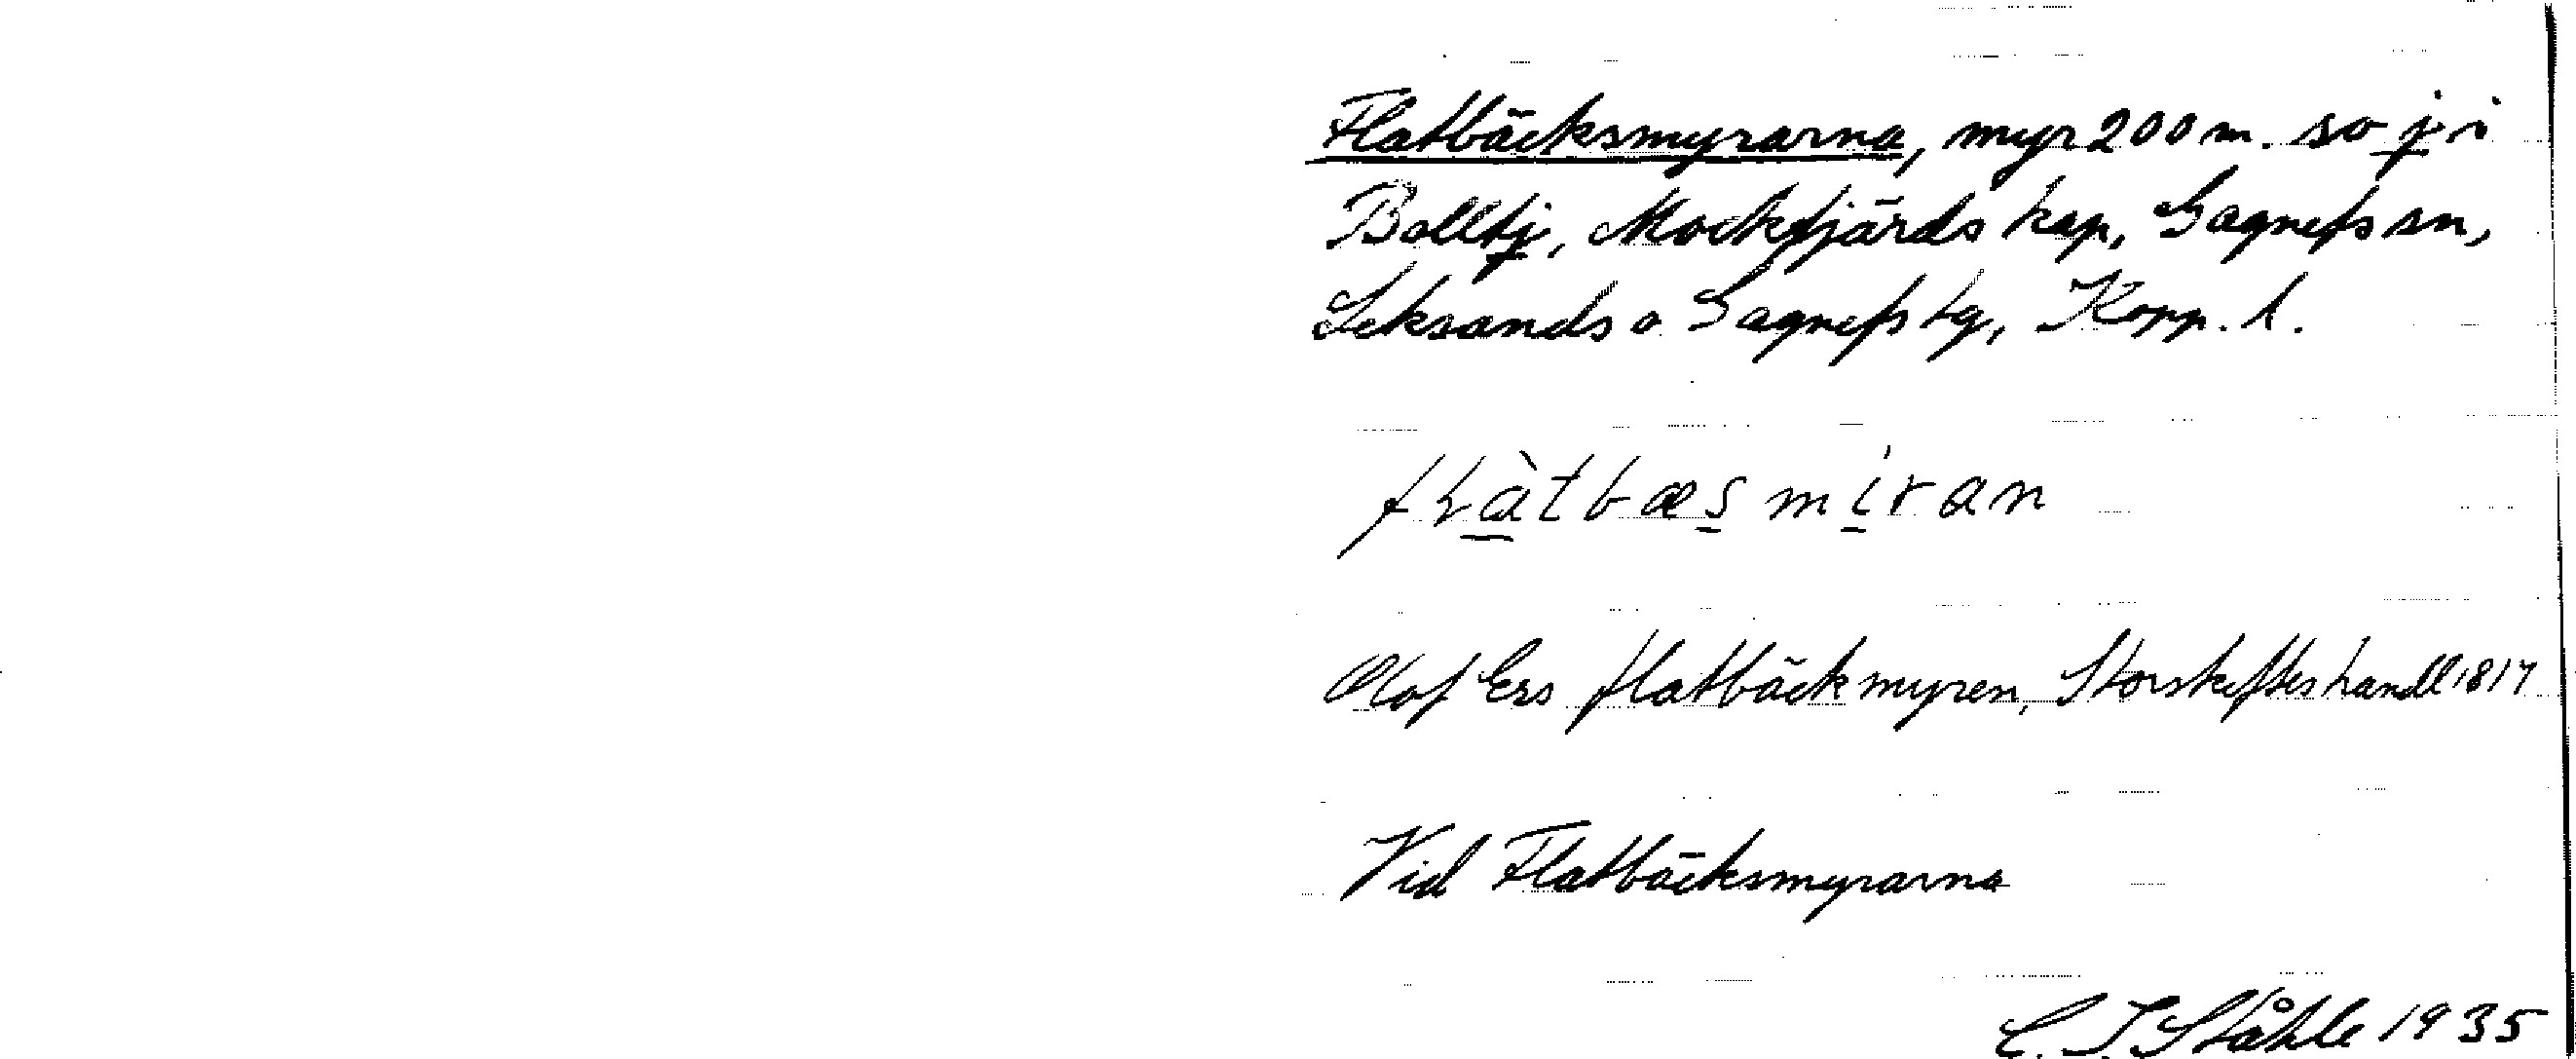 Flatbäcksmyrarna, myr 200 m. so j i
Balltj, Mockfjärds kap, Gagnefs sn,
Leksands o Gagnefs tg, Kopp. l.
Olof Ers flatbäckmyren, Storskifteshandl 1817
Vid Flatbäcksmyrarna
C. I. Ståhle 1935